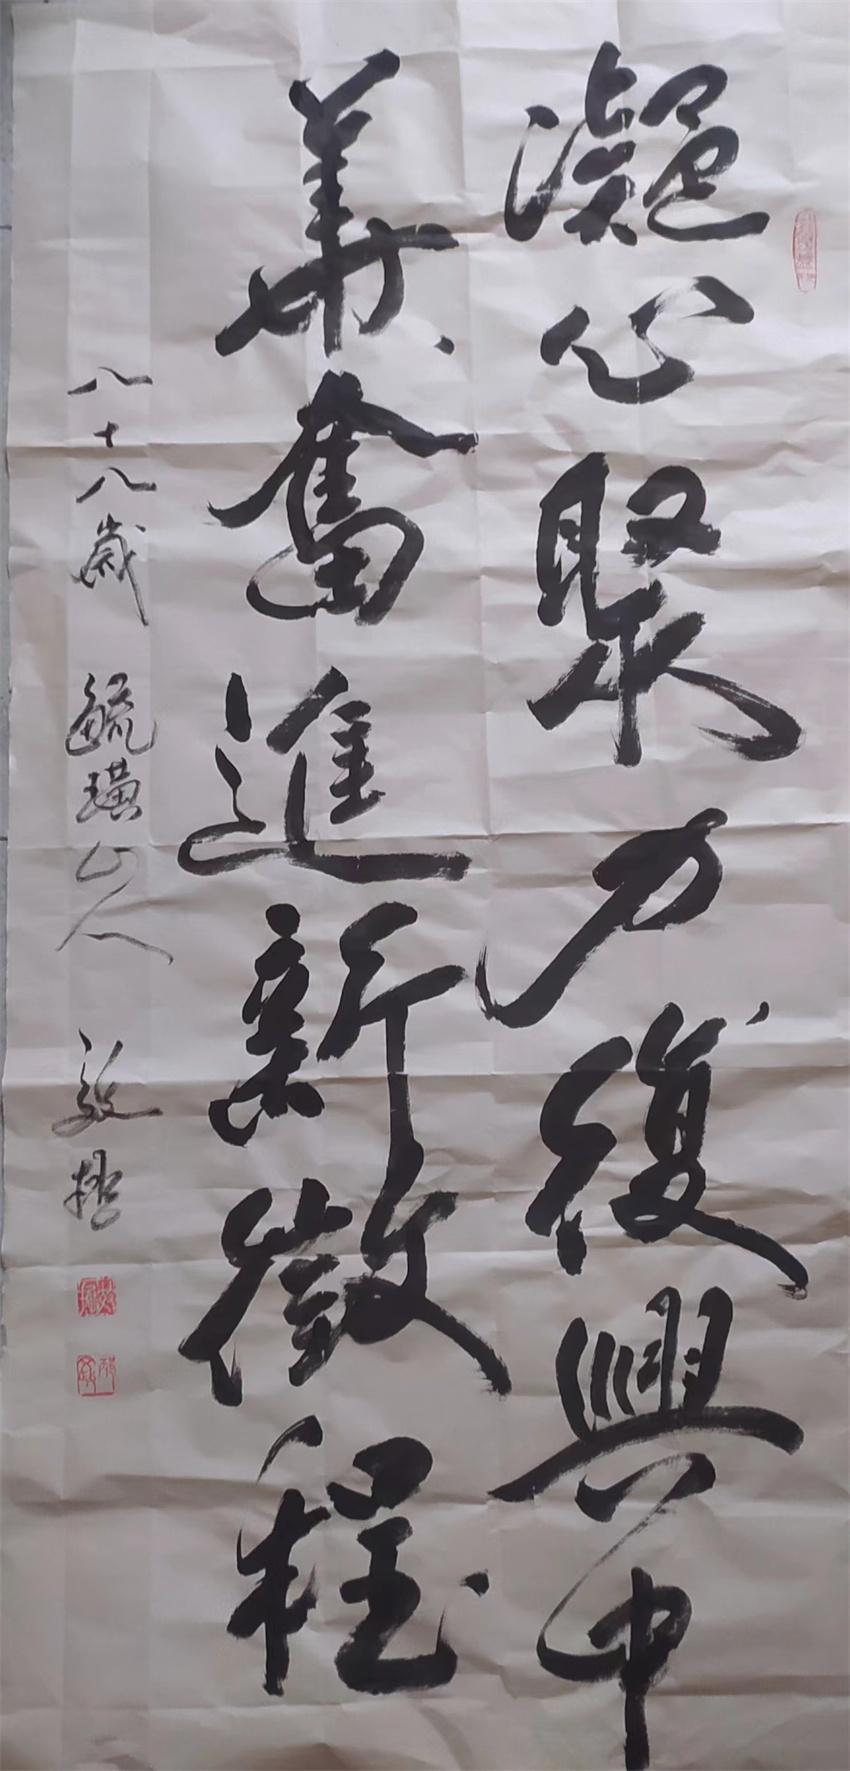 凝心聚力復興中
華奮進新徵程
八十八歲 毓璜山人 敬哲